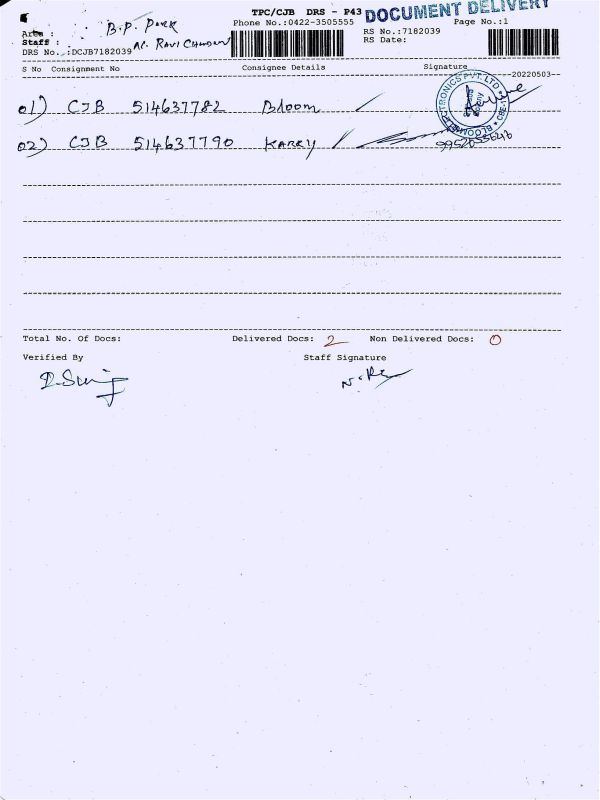 TPC/CJB DRS - P43 DOCUMENT DELIVERY
Area : B.P. Park Phone No.:0422-3505555 Page No.:1
Staff : N. Ravi Chandran RS No.:7182039
DRS No.:DCJB7182039 RS Date:
S No Consignment No Consignee Details Signature
20220503
01) CJB 514637782 Bloom
BLOOM ELECTRONICS PVT. LTD
02) CJB 514637790 KARRY
9952055646
Total No. Of Docs: Delivered Docs: 2 Non Delivered Docs: 0
Verified By Staff Signature